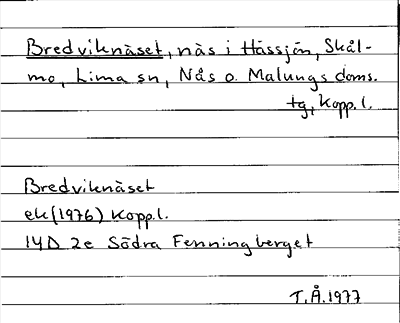 Bredviknäset, näs i Hässjön, Skål-
mo, Lima sn, Nås o. Malungs doms.
tg, Kopp. l.
Bredviknäset
ek (1976) Kopp.l.
14D 2e Södra Fenningberget
T.Å.1977